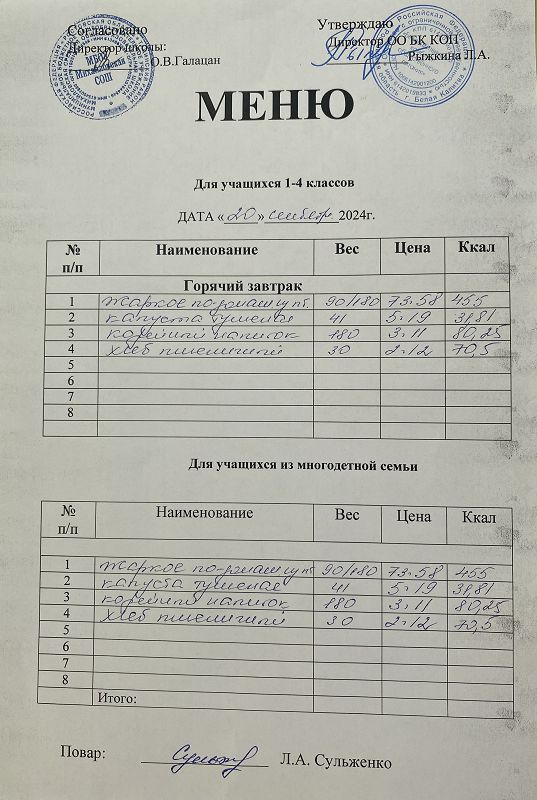 Согласовано
Директор школы:
О.В.Галацан
Утверждаю
Директор ОО БК КОП
Рыжкина Л.А.
МЕНЮ
Для учащихся 1-4 классов
ДАТА « 20 » сентябр 2024г.
№ п/п Наименование Вес Цена Ккал
Горячий завтрак
1 Жаркое по-домашн 90/180 73-58 455
2 капуста тушеная 41 5-19 31,81
3 кофейный напиток 180 3-11 80,25
4 хлеб пшеничный 30 2-12 70,5
5
6
7
8
Для учащихся из многодетной семьи
№ п/п Наименование Вес Цена Ккал
1 Жаркое по-домашн 90/180 73-58 455
2 капуста тушеная 41 5-19 31,81
3 кофейный напиток 180 3-11 80,25
4 хлеб пшеничный 30 2-12 70,5
5
6
7
8
Итого:
Повар: Л.А. Сульженко